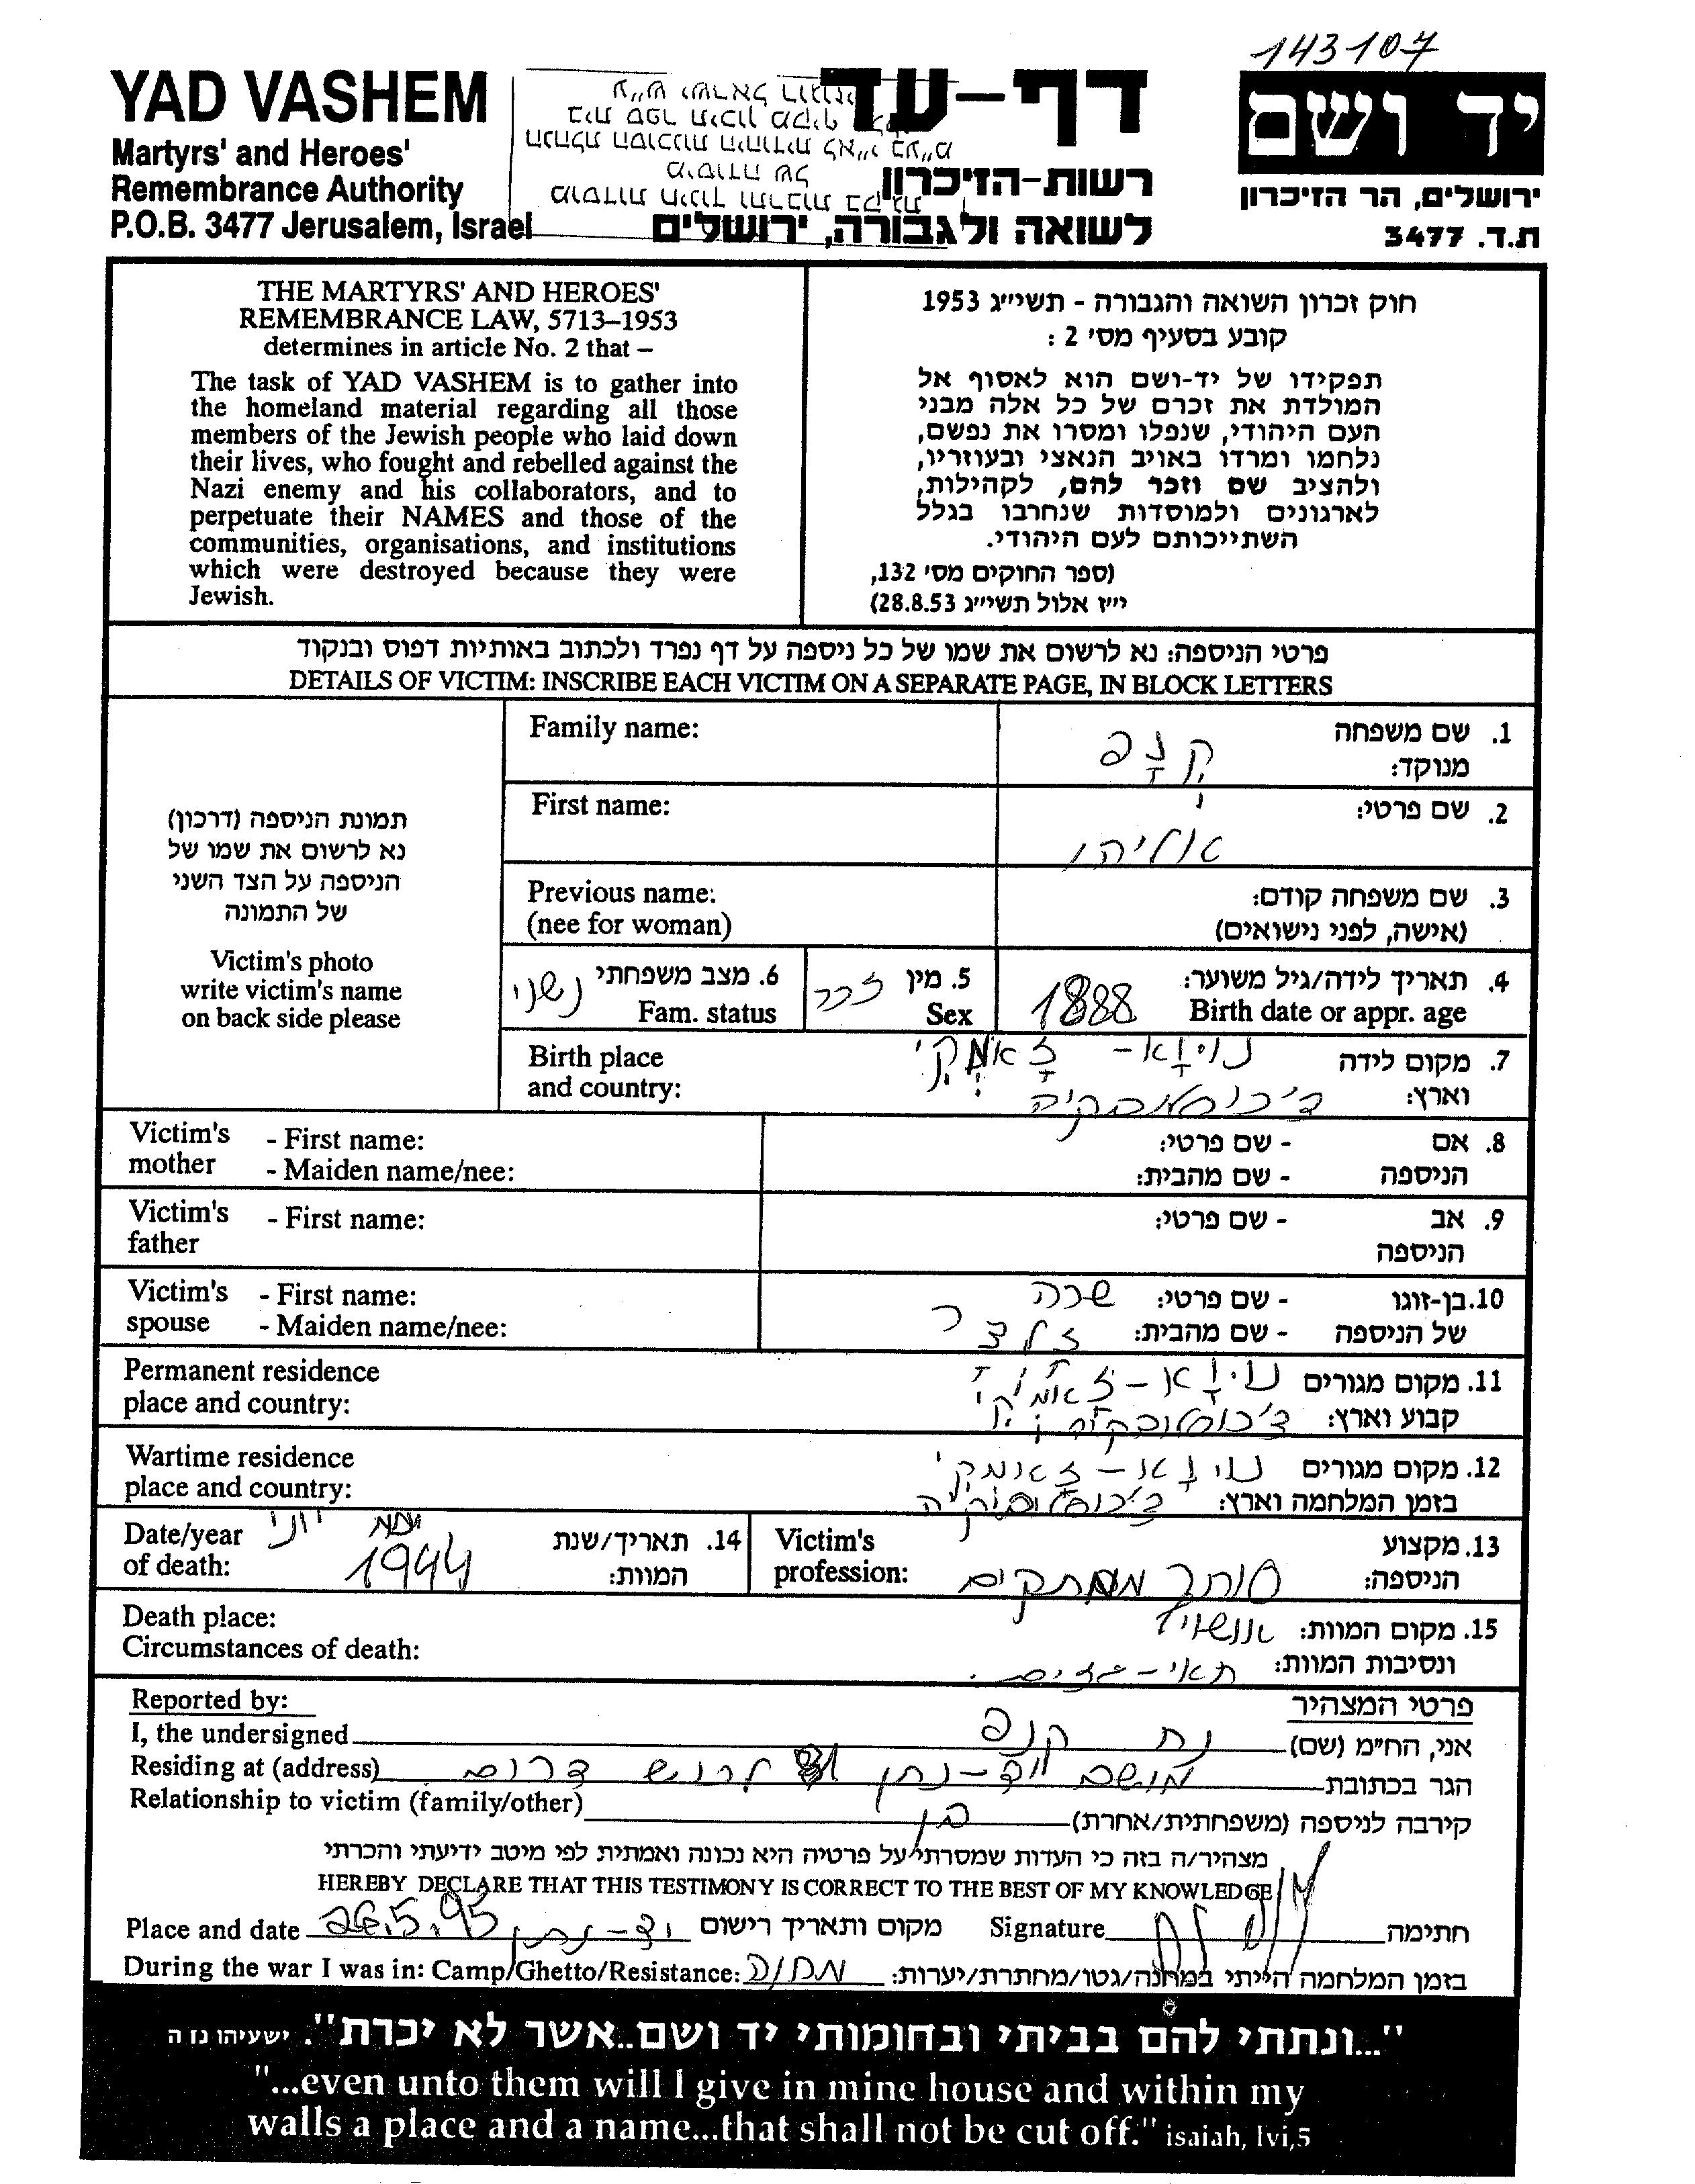 143107
YAD VASHEM
Martyrs' and Heroes'
Remembrance Authority
P.O.B. 3477 Jerusalem, Israel
דף-עד
רשות-הזיכרון
לשואה ולגבורה, ירושלים
יד ושם
ירושלים, הר הזיכרון
ת.ד. 3477
THE MARTYRS' AND HEROES'
REMEMBRANCE LAW, 5713–1953
determines in article No. 2 that –
The task of YAD VASHEM is to gather into
the homeland material regarding all those
members of the Jewish people who laid down
their lives, who fought and rebelled against the
Nazi enemy and his collaborators, and to
perpetuate their NAMES and those of the
communities, organisations, and institutions
which were destroyed because they were
Jewish.
חוק זכרון השואה והגבורה - תשי״ג 1953
קובע בסעיף מס' 2 :
תפקידו של יד-ושם הוא לאסוף אל
המולדת את זכרם של כל אלה מבני
העם היהודי, שנפלו ומסרו את נפשם,
נלחמו ומרדו באויב הנאצי ובעוזריו,
ולהציב שם וזכר להם, לקהילות,
לארגונים ולמוסדות שנחרבו בגלל
השתייכותם לעם היהודי.
(ספר החוקים מס' 132,
י״ז אלול תשי״ג 28.8.53)
פרטי הניספה: נא לרשום את שמו של כל ניספה על דף נפרד ולכתוב באותיות דפוס ובנקוד
DETAILS OF VICTIM: INSCRIBE EACH VICTIM ON A SEPARATE PAGE, IN BLOCK LETTERS
תמונת הניספה (דרכון)
נא לרשום את שמו של
הניספה על הצד השני
של התמונה
Victim's photo
write victim's name
on back side please
Family name: קנפ 1. שם משפחה
מנוקד:
First name: אליהו 2. שם פרטי:
Previous name: 3. שם משפחה קודם:
(nee for woman) (אישה, לפני נישואים)
נשוי 6. מצב משפחתי זכר 5. מין 4. תאריך לידה/גיל משוער:
Fam. status Sex 1888 Birth date or appr. age
Birth place 7. מקום לידה
and country: צ'כוסלובקיה וארץ:
Victim's - First name: - שם פרטי: 8. אם
mother - Maiden name/nee: - שם מהבית: הניספה
Victim's - First name: - שם פרטי: 9. אב
father הניספה
Victim's - First name: שרה - שם פרטי: 10. בן-זוגו
spouse - Maiden name/nee: זלצר - שם מהבית: של הניספה
Permanent residence 11. מקום מגורים
place and country: צ'כוסלובקיה קבוע וארץ:
Wartime residence 12. מקום מגורים
place and country: צ'כוסלובקיה בזמן המלחמה וארץ:
Date/year יוני 14. תאריך/שנת Victim's 13. מקצוע
of death: 1944 המוות: profession: סוחר ממתקים הניספה:
Death place: אושויץ 15. מקום המוות:
Circumstances of death: תאי-גזים. ונסיבות המוות:
Reported by: פרטי המצהיר
I, the undersigned נח קנפ אני, הח״מ (שם)
Residing at (address) מושב יד-נתן לכיש דרום הגר בכתובת
Relationship to victim (family/other) בן קירבה לניספה (משפחתית/אחרת)
מצהיר/ה בזה כי העדות שמסרתי על פרטיה היא נכונה ואמתית לפי מיטב ידיעתי והכרתי
HEREBY DECLARE THAT THIS TESTIMONY IS CORRECT TO THE BEST OF MY KNOWLEDGE
Place and date 26.5.95 יד-נתן מקום ותאריך רישום Signature חתימה
During the war I was in: Camp/Ghetto/Resistance: מחנה בזמן המלחמה הייתי במחנה/גטו/מחתרת/יערות:
"...ונתתי להם בביתי ובחומותי יד ושם..אשר לא יכרת". ישעיהו נו ה
"...even unto them will I give in mine house and within my
walls a place and a name...that shall not be cut off." isaiah, lvi,5